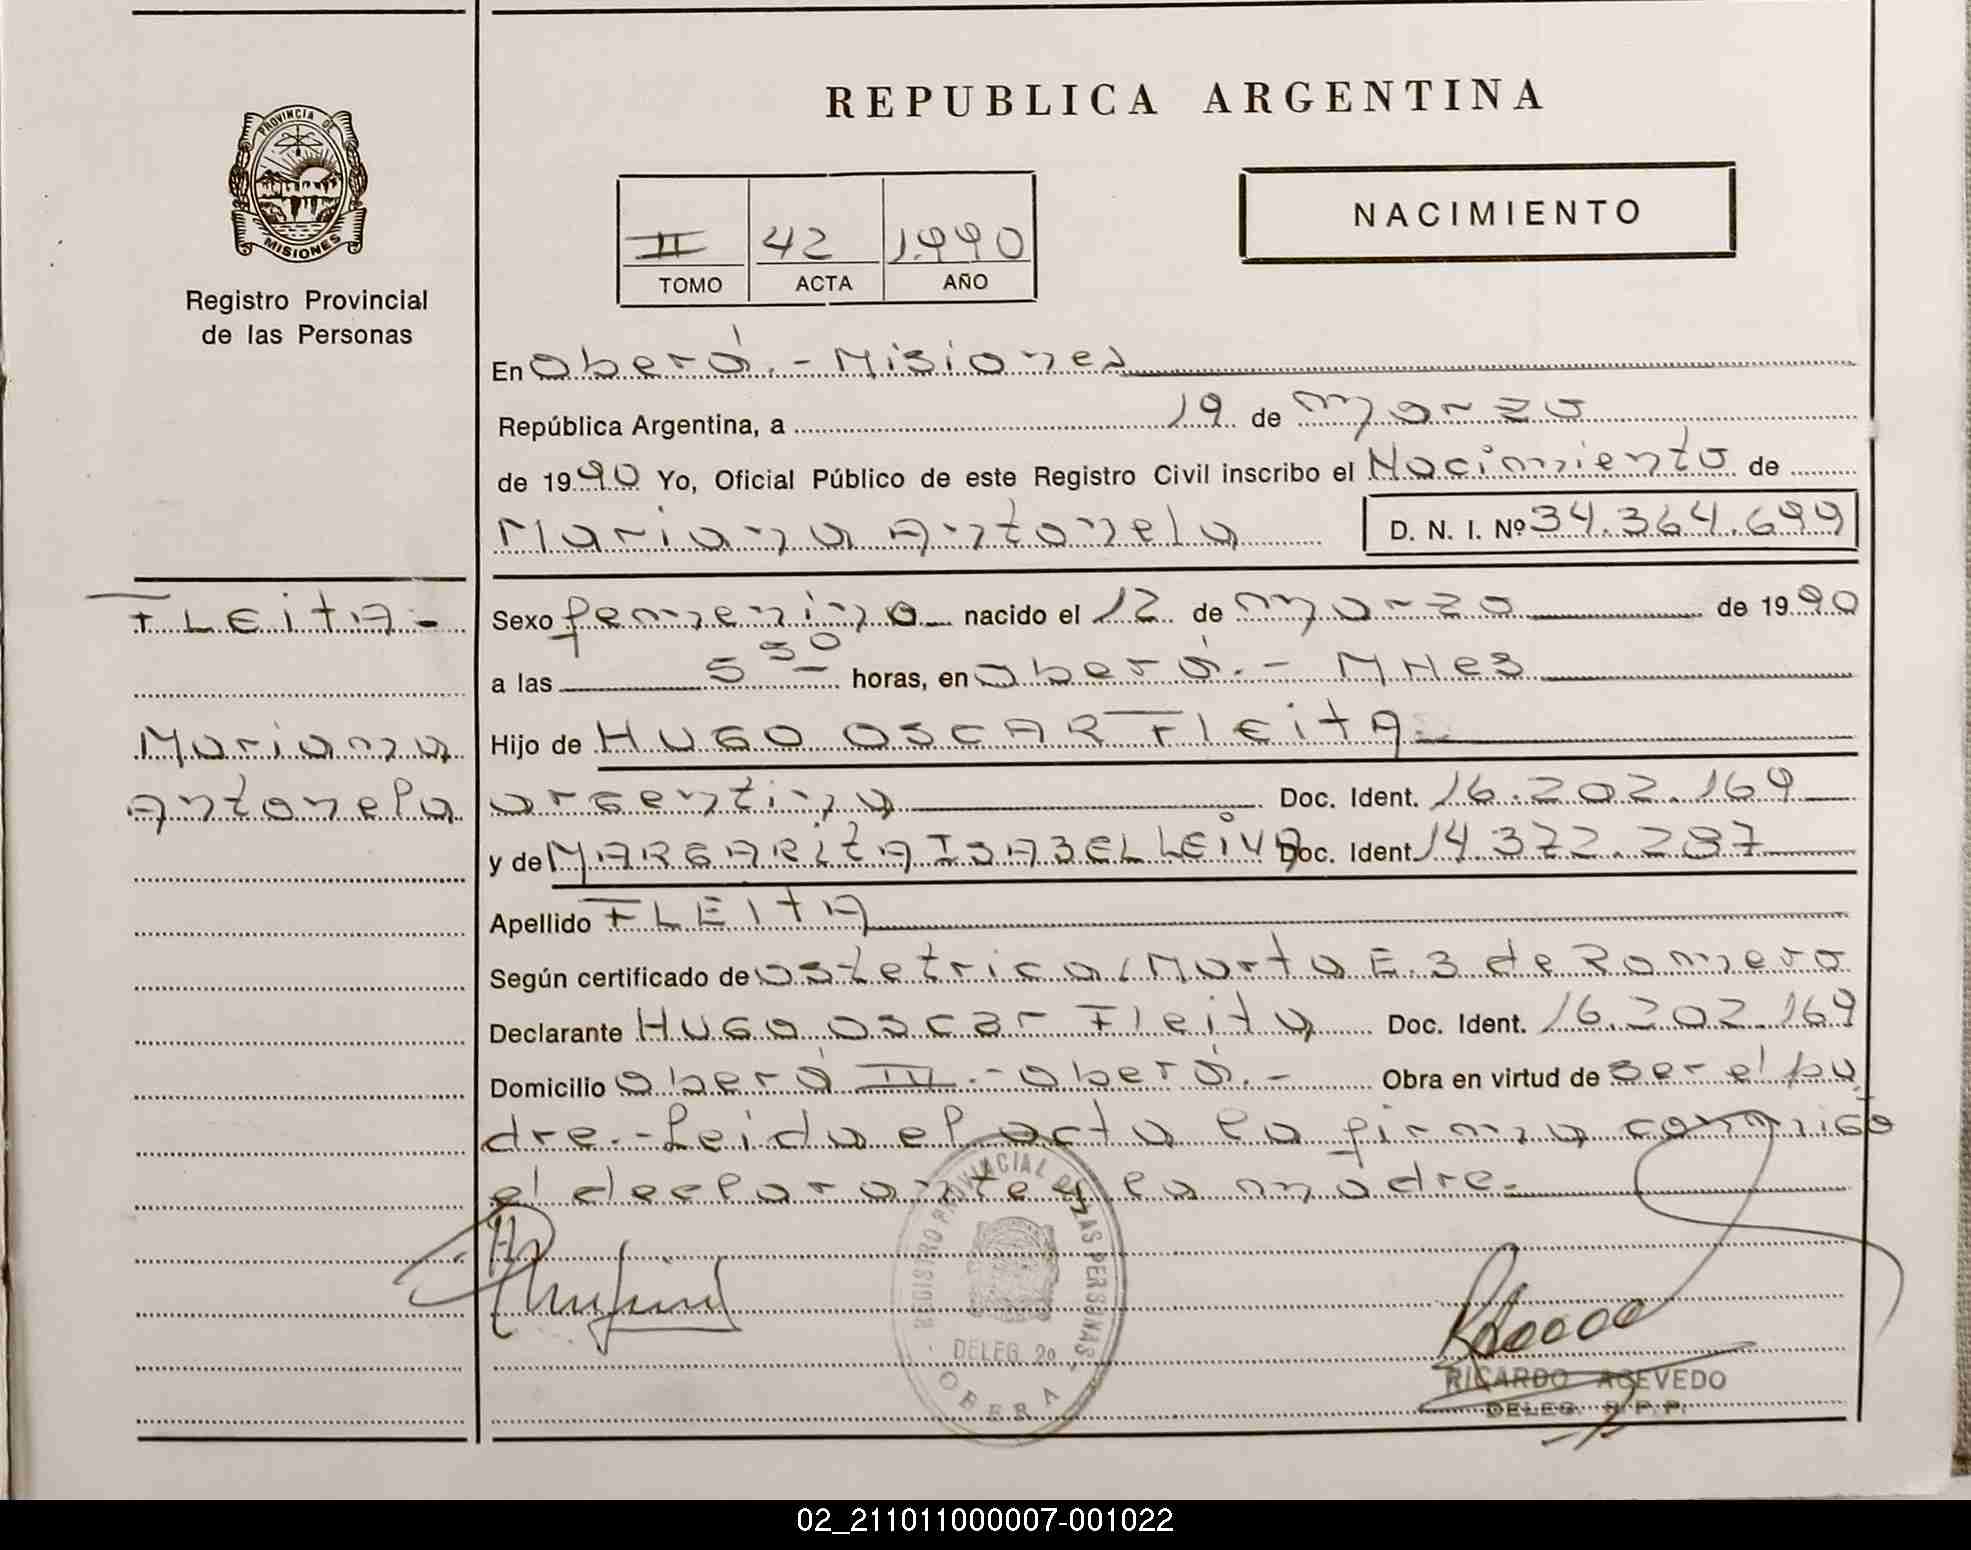 REPUBLICA ARGENTINA
PROVINCIA DE
MISIONES
Registro Provincial
de las Personas
NACIMIENTO
II 42 1.990
TOMO ACTA AÑO
En Oberá.- Misiones
República Argentina, a 19 de marzo
de 1990 Yo, Oficial Público de este Registro Civil inscribo el Nacimiento de
Mariana Antonela D. N. I. Nº 34.364.699
FLEITA-
Mariana
Antonela
Sexo femenino nacido el 12 de marzo de 1990
a las 5 30 horas, en Oberá.- Mnes
Hijo de HUGO OSCAR FLEITA
argentina Doc. Ident. 16.202.169
y de MARGARITA ISABEL LEIVA Doc. Ident. 14.372.287
Apellido FLEITA
Según certificado de obstetrica/Marta E. B de Romero
Declarante Hugo Oscar Fleita Doc. Ident. 16.202.169
Domicilio Oberá IV.-Oberá.- Obra en virtud de ser el pa
dre.-Leida el acta la firma conmigo
el declarante y la madre.-
REGISTRO PROVINCIAL DE LAS PERSONAS
DELEG. 2º
OBERA
RICARDO ACEVEDO
DELEG. R.P.P.
02_211011000007-001022